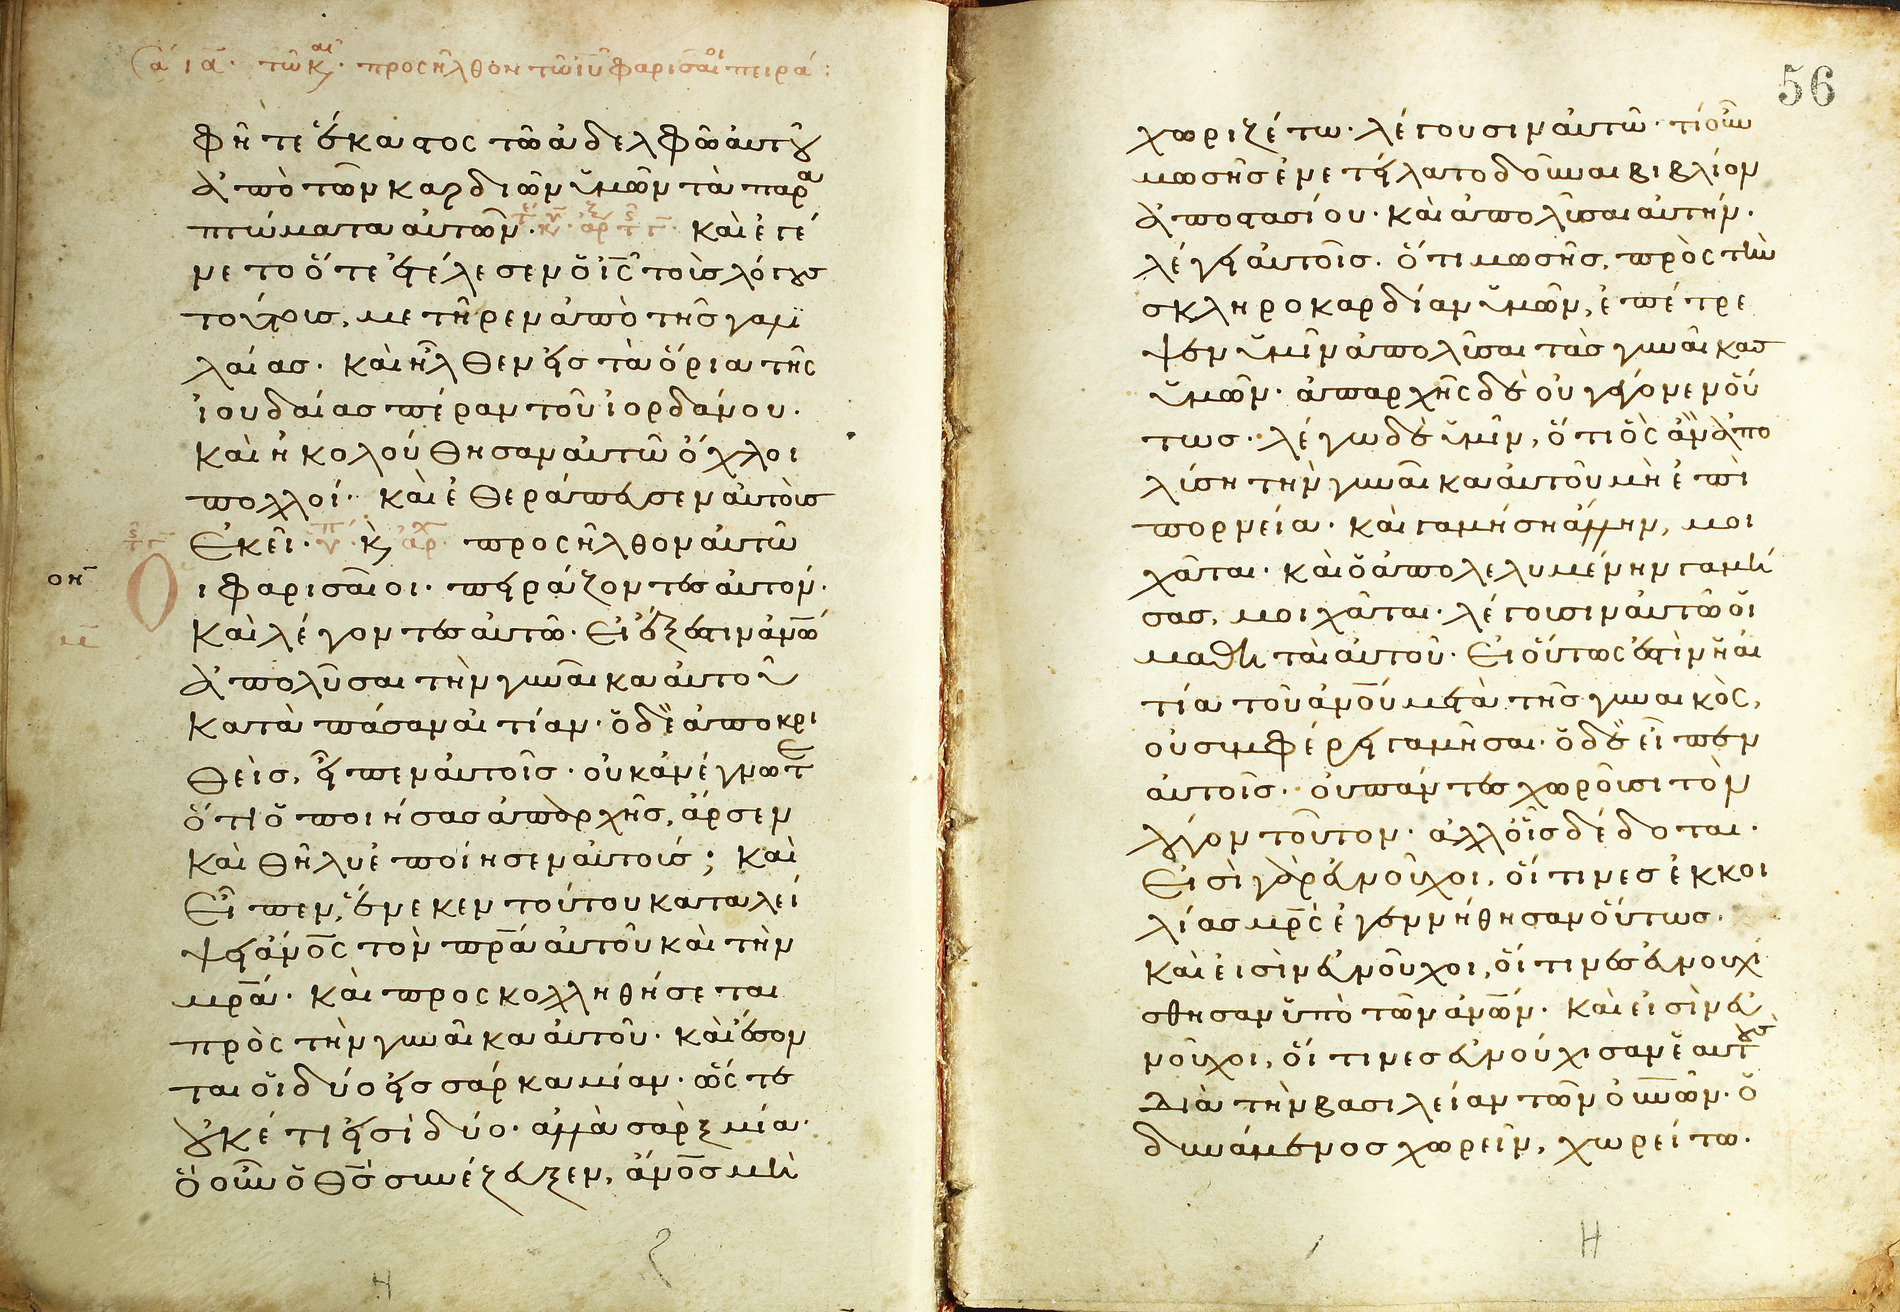 προσῆλθον τῶ ἰυ φαρισαῖοι πειρά
φῆτε ἕκαστος τῶ ἀδελφῶ ἀυτοῦ
ἀπὸ τῶν καρδιῶν ὑμῶν τὰ παρα
πτώματα αυτῶν. και ἐγέ
νετο ὅτε ἐτέλεσεν ὁ ις τοὺς λόγους
τούτους, μετῆρεν ἀπὸ τῆς γαλι
λαίας. και ἦλθεν εἰς τὰ ὅρια τῆς
ἰουδαίας πέραν τοῦ ἰορδάνου.
και ἠκολούθησαν ἀυτῶ ὄχλοι
πολλοί. και ἐθεράπευσεν αὐτοὺς
ἐκεῖ. κ προσῆλθον αὐτῶ
Οἱ φαρισαῖοι. πειράζοντες αὐτον.
και λέγοντες αὐτῶ. Εἰ ἔξεστιν ἀνω
ἀπολῦσαι τὴν γυναῖκα ἀυτοῦ
κατὰ πάσαν αἰτίαν. ὁ δὲ ἀποκρι
θεὶς, εἶπεν ἀυτοῖς. οὐκ ἀνέγνωτε
ὅτι ὁ ποιήσας ἀπαρχῆς, ἄρσεν
και θῆλυ ἐποίησεν αυτούς; και
Εἶπεν, ἕνεκεν τούτου καταλεί
ψει ἀνος τὸν πρα ἀυτοῦ και τὴν
μρα. και προσκολληθήσεται
πρὸς τὴν γυναῖκα αυτοῦ. και ἔσον
ται ὁι δύο εἰς σάρκα μίαν. ὥστε
οὐκέτι εἰσὶ δύο. ἀλλὰ σὰρξ μία.
ὃ οὖν ὁ θς συνέζευξεν, ἄνος μὴ
56
χωριζέτω. λέγουσιν ἀυτῶ. τί οὖν
μωσῆς ἐνετείλατο δοῦναι βιβλίον
ἀποστασίου. και ἀπολῦσαι αυτήν.
λέγει ἀυτοῖς. ὅτι μωσῆς, πρὸς τὴν
σκληροκαρδίαν ὑμῶν, ἐπέτρε
ψεν ὑμῖν ἀπολῦσαι τὰς γυναῖκας
ὑμῶν. ἀπαρχῆς δὲ οὐ γέγονεν οὕ
τως. λέγω δὲ ὑμῖν, ὅτι ὃς ἂν ἀπο
λύση τὴν γυναῖκα αυτοῦ μὴ ἐπὶ
πορνεία. και γαμήση ἄλλην, μοι
χᾶται. και ὁ ἀπολελυμένην γαμή
σας, μοιχᾶται. λέγουσιν ἀυτῶ ὁι
μαθηταὶ αὐτοῦ. Εἰ οὕτως ἐστὶν ἡ ἀι
τία τοῦ ἀνου μετὰ τῆς γυναικὸς,
οὐ συμφέρει γαμῆσαι. ὁ δὲ εἶπεν
ἀυτοῖς. οὐ πάντες χωροῦσι τὸν
λόγον τοῦτον. ἀλλοἷς δέδοται.
Εἰσὶ γὰρ ἐυνοῦχοι, οἵτινες ἐκ κοι
λίας μρς ἐγεννήθησαν οὕτως.
και εἰσὶν ἐυνοῦχοι, οἵτινες ἐυνουχί
σθησαν ὑπὸ τῶν ἀνων. και εἰσὶν ἐυ
νοῦχοι, οἵτινες ἐυνούχισαν ἑαυτους
Διὰ τὴν βασιλείαν τῶν ὀυνῶν. ὁ
δυνάμενος χωρεῖν, χωρείτω.